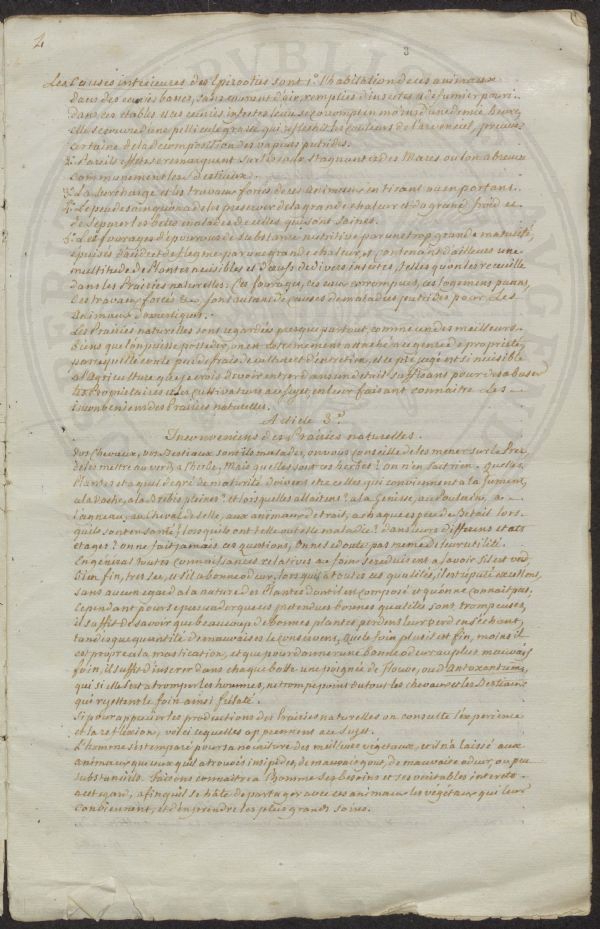 2
3
Les Causes intérieures des Epizooties sont 1° l'habitation de ces animaux
dans des écuries basses, sans courant d'air, remplies d'insectes et de fumier pourri.
dans ces étables et ces écuries infectes l'eau se corrompt en moins d'une demie heure,
elle se couvre d'une pellicule grasse qui réfléchit les couleurs de l'arc en ciel, preuve
certaine de la décomposition des vapeurs putrides.
2° Pareils effets se remarquent sur les eaux stagnantes des Mares ou l'on abreuve
Communément les Bestieaux.
3° La surcharge et les travaux forcés de ces animaux en tirant ou en portant.
4° Le peu de soin qu'on a de les préserver de la grande chaleur et du grand froid et
de séparer les bêtes malades de celles qui sont saines.
5° Les fourages dépourvus de substance nutritive par une trop grande maturité,
épuisés d'acide et de flegme par une grande chaleur, et contenant d'ailleurs une
multitude de Plantes nuisibles et d'oeufs de divers insectes, telles qu'on les recueille
dans les Prairies naturelles. Ces fourages, ces eaux corrompues, ces logemens puans,
des travaux forcés &a. sont autant de causes de maladies putrides pour Les
Animaux Domestiques.
Les Prairies naturelles sont regardées presque partout comme un des meilleurs
Biens que l'on puisse posséder, on est extrêmement attaché à ce genre de propriété,
parcequ'elle coute peu de frais de culture et d'entretien, et ce préjugé est si nuisible
à l'Agriculture que je crois devoir entrer dans un détail suffisans pour désabuser
les propriétaires et les cultivateurs au sujet, en leur faisant connaitre Les
inconveniens des Prairies naturelles.
Article 3e.
Inconveniens des Prairies naturelles.
Vos Chevaux, vos Bestiaux sont ils malades, on vous conseille de les mener sur le Pré,
de les mettre au verd, à l'herbe. Mais quelles sont ces herbes? on n'en sait rien. quelles
Plantes et a quel degré de maturité doivent être celles qui conviennent a la Jument,
a la Vache, a la Brebis pleines? et lorsqu'elles allaitent? a la Genisse, au Poulain, a
l'agneau, au Cheval de selle, aux animaux de trait, a chaque espece de Bétail lors
qu'ils sont en santé? lorsqu'ils ont telle ou telle maladie? dans leurs différens etats
et ages? on ne fait jamais ces questions, on ne se doute pas même de leur utilité.
En général toutes connaissances relatives au foin se réduisent a savoir s'il est verd
bien fin, très sec, et s'il a bonne odeur, lorsqu'il a toutes ces qualités, il est réputé excellent,
sans aucun egard a la nature des Plantes dont il est composé et qu'on ne connait pas.
Cependant pour se persuader que ces prétendues bonnes qualités sont trompeuses,
il suffit de savoir que beaucoup de bonnes plantes perdent leur verd en séchant,
tandis que quantité de mauvaises le conservent, que le foin plus il est fin, moins il
est propre a la mastication, et que pour donner une bonne odeur au plus mauvais
foin, il suffit d'insérer dans chaque botte une poignée de Flouve, ou d'Antoxantum,
qui si elle sert a tromper les hommes, ne trompe point du tout les chevaux et les Bestiaux
qui rejettent le foin ainsi frelaté.
Si pour apprécier les productions des Prairies naturelles on consulte l'expérience
et la réflexion, voici ce qu'elles apprennent au sujet.
L'homme s'est emparé pour sa nourriture des meilleurs végétaux, et il n'a laissé aux
animaux que ceux qu'il a trouvés insipides, de mauvais gout, de mauvaise odeur, ou peu
substantiels. Faisons connaitre a l'homme ses besoins et ses véritables interets
a cet egard, afin qu'il se hâte de partager avec ces animaux les végétaux qui leur
conviennent, et d'en prendre les plus grands soins.